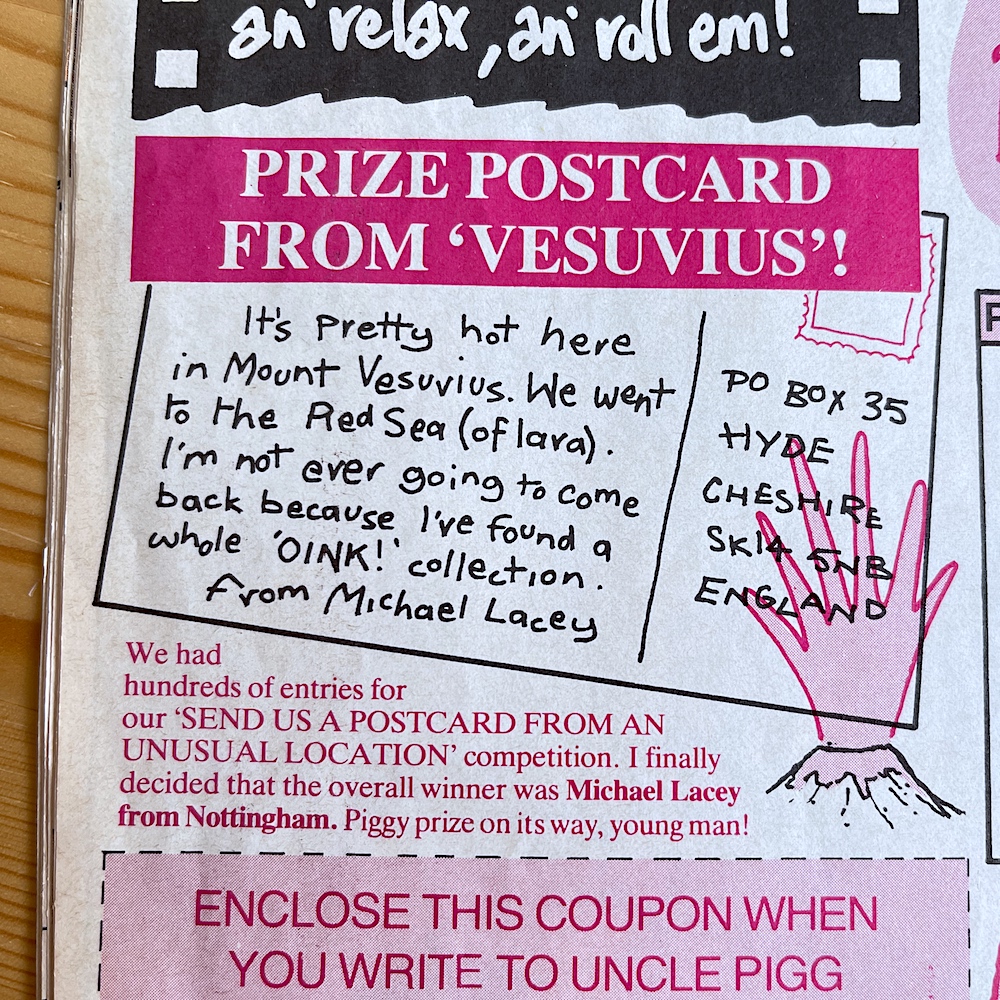 an' relax, an' roll em!
PRIZE POSTCARD
FROM ‘VESUVIUS’!
It's pretty hot here
in Mount Vesuvius. We went
to the Red Sea (of lava).
I'm not ever going to come
back because I've found a
whole 'OINK!' collection.
from Michael Lacey
PO BOX 35
HYDE
CHESHIRE
SK14 5NB
ENGLAND
We had
hundreds of entries for
our ‘SEND US A POSTCARD FROM AN
UNUSUAL LOCATION’ competition. I finally
decided that the overall winner was Michael Lacey
from Nottingham. Piggy prize on its way, young man!
ENCLOSE THIS COUPON WHEN
YOU WRITE TO UNCLE PIGG